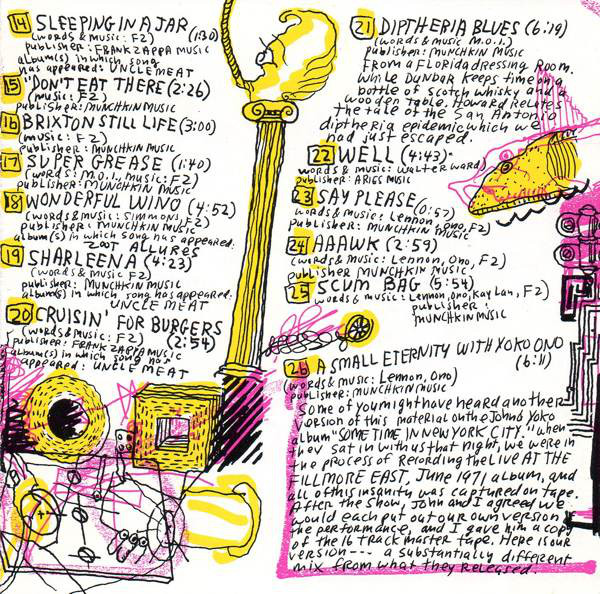 14 SLEEPING IN A JAR
(words & music: FZ) (1:30)
publisher: FRANK ZAPPA MUSIC
album(s) in which song
has appeared: UNCLE MEAT
15 "DON'T EAT THERE (2:26)
(music: FZ)
publisher: MUNCHKIN MUSIC
16 BRIXTON STILL LIFE (3:00)
(music: FZ)
publisher: MUNCHKIN MUSIC
17 SUPER GREASE (1:40)
(words: M.O.I., music: FZ)
publisher: MUNCHKIN MUSIC
18 WONDERFUL WINO (4:52)
(words & music: SIMMONS, FZ)
publisher: MUNCHKIN MUSIC
album(s) in which song has appeared:
ZOOT ALLURES
19 SHARLEENA (4:23)
(words & music: FZ)
publisher: MUNCHKIN MUSIC
album(s) in which song has appeared:
UNCLE MEAT
20 CRUISIN' FOR BURGERS
(words & music: FZ) (2:54)
publisher: FRANK ZAPPA MUSIC
album(s) in which song has
appeared: UNCLE MEAT
21 DIPTHERIA BLUES (6:19)
(words & music: M.O.I.)
publisher: MUNCHKIN MUSIC
FROM A FLORIDA DRESSING ROOM.
While DUNBAR KEEPS time on a
bottle of scotch whisky and a
wooden table, Howard Relates
the tale of the San Antonio
diptheria epidemic which we
had just escaped.
22 WELL (4:43)
words & music: Walter Ward)
publisher: ARIES MUSIC
23 SAY PLEASE (0:57)
words & music: Lennon, Ono, FZ)
publisher: MUNCHKIN MUSIC
24 AAAWK (2:59)
(words & music: Lennon, Ono, FZ)
publisher MUNCHKIN MUSIC
25 SCUM BAG (5:54)
words & music: Lennon, Ono, Kaylan, FZ)
publisher:
MUNCHKIN MUSIC
26 A SMALL ETERNITY WITH YOKO ONO
(6:11)
(words & music: Lennon, Ono)
publisher: MUNCHKIN MUSIC
Some of you might have heard another
version of this material on the John & Yoko
album "SOMETIME IN NEW YORK CITY." When
they sat in with us that night, we were in
the process of recording the LIVE AT THE
FILLMORE EAST, June 1971 album, and
all of this insanity was captured on tape.
After the show, John and I agreed we
would each put out our own version of
the performance, and I gave him a copy
of the 16 track master tape. Here is our
version --- a substantially different
mix from what they released.